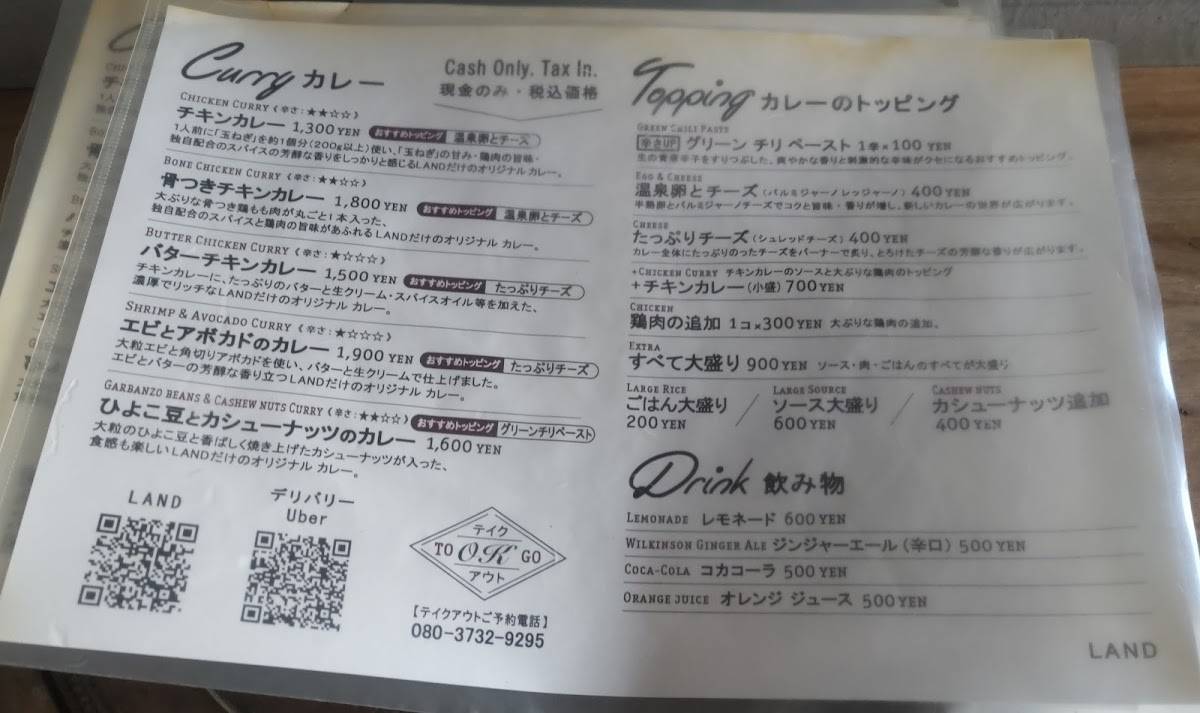 Curry カレー
Cash Only. Tax In.
現金のみ・税込価格
CHICKEN CURRY《辛さ:★★☆☆》
チキンカレー 1,300 YEN おすすめトッピング 温泉卵とチーズ
1人前に「玉ねぎ」を約1個分(200g以上)使い、「玉ねぎ」の甘み・鶏肉の旨味・
独自配合のスパイスの芳醇な香りをしっかりと感じるLANDだけのオリジナル カレー。
BONE CHICKEN CURRY《辛さ:★★☆☆》
骨つきチキンカレー 1,800 YEN おすすめトッピング 温泉卵とチーズ
大ぶりな骨つき鶏もも肉が丸ごと1本入った、
独自配合のスパイスと鶏肉の旨味があふれるLANDだけのオリジナル カレー。
BUTTER CHICKEN CURRY《辛さ:★☆☆☆》
バターチキンカレー 1,500 YEN おすすめトッピング たっぷりチーズ
チキンカレーに、たっぷりのバターと生クリーム・スパイスオイル等を加えた、
濃厚でリッチなLANDだけのオリジナル カレー。
SHRIMP & AVOCADO CURRY《辛さ:★☆☆☆》
エビとアボカドのカレー 1,900 YEN おすすめトッピング たっぷりチーズ
大粒エビと角切りアボカドを使い、バターと生クリームで仕上げました。
エビとバターの芳醇な香り立つLANDだけのオリジナル カレー。
GARBANZO BEANS & CASHEW NUTS CURRY《辛さ:★★☆☆》
ひよこ豆とカシューナッツのカレー 1,600 YEN おすすめトッピング グリーンチリペースト
大粒のひよこ豆と香ばしく焼き上げたカシューナッツが入った、
食感も楽しいLANDだけのオリジナル カレー。
LAND
デリバリー
Uber
テイク
TO OK GO
アウト
【テイクアウトご予約電話】
080-3732-9295
Topping カレーのトッピング
GREEN CHILI PASTE
辛さUP グリーン チリ ペースト 1辛×100 YEN
生の青唐辛子をすりつぶした、爽やかな香りと刺激的な辛味がクセになるおすすめトッピング。
EGG & CHEESE
温泉卵とチーズ(パルミジャーノ レッジャーノ) 400 YEN
半熟卵とパルミジャーノチーズでコクと旨味・香りが増し、新しいカレーの世界が広がります。
CHEESE
たっぷりチーズ(シュレッドチーズ) 400 YEN
カレー全体にたっぷりのったチーズをバーナーで炙り、とろけたチーズの芳醇な香りが広がります。
+CHICKEN CURRY チキンカレーのソースと大ぶりな鶏肉のトッピング
+チキンカレー(小盛) 700 YEN
CHICKEN
鶏肉の追加 1コ×300 YEN 大ぶりな鶏肉の追加。
EXTRA
すべて大盛り 900 YEN ソース・肉・ごはんのすべてが大盛り
LARGE RICE
ごはん大盛り
200 YEN
/
LARGE SOURCE
ソース大盛り
600 YEN
/
CASHEW NUTS
カシューナッツ追加
400 YEN
Drink 飲み物
LEMONADE レモネード 600 YEN
WILKINSON GINGER ALE ジンジャーエール(辛口) 500 YEN
COCA-COLA コカコーラ 500 YEN
ORANGE JUICE オレンジ ジュース 500 YEN
LAND